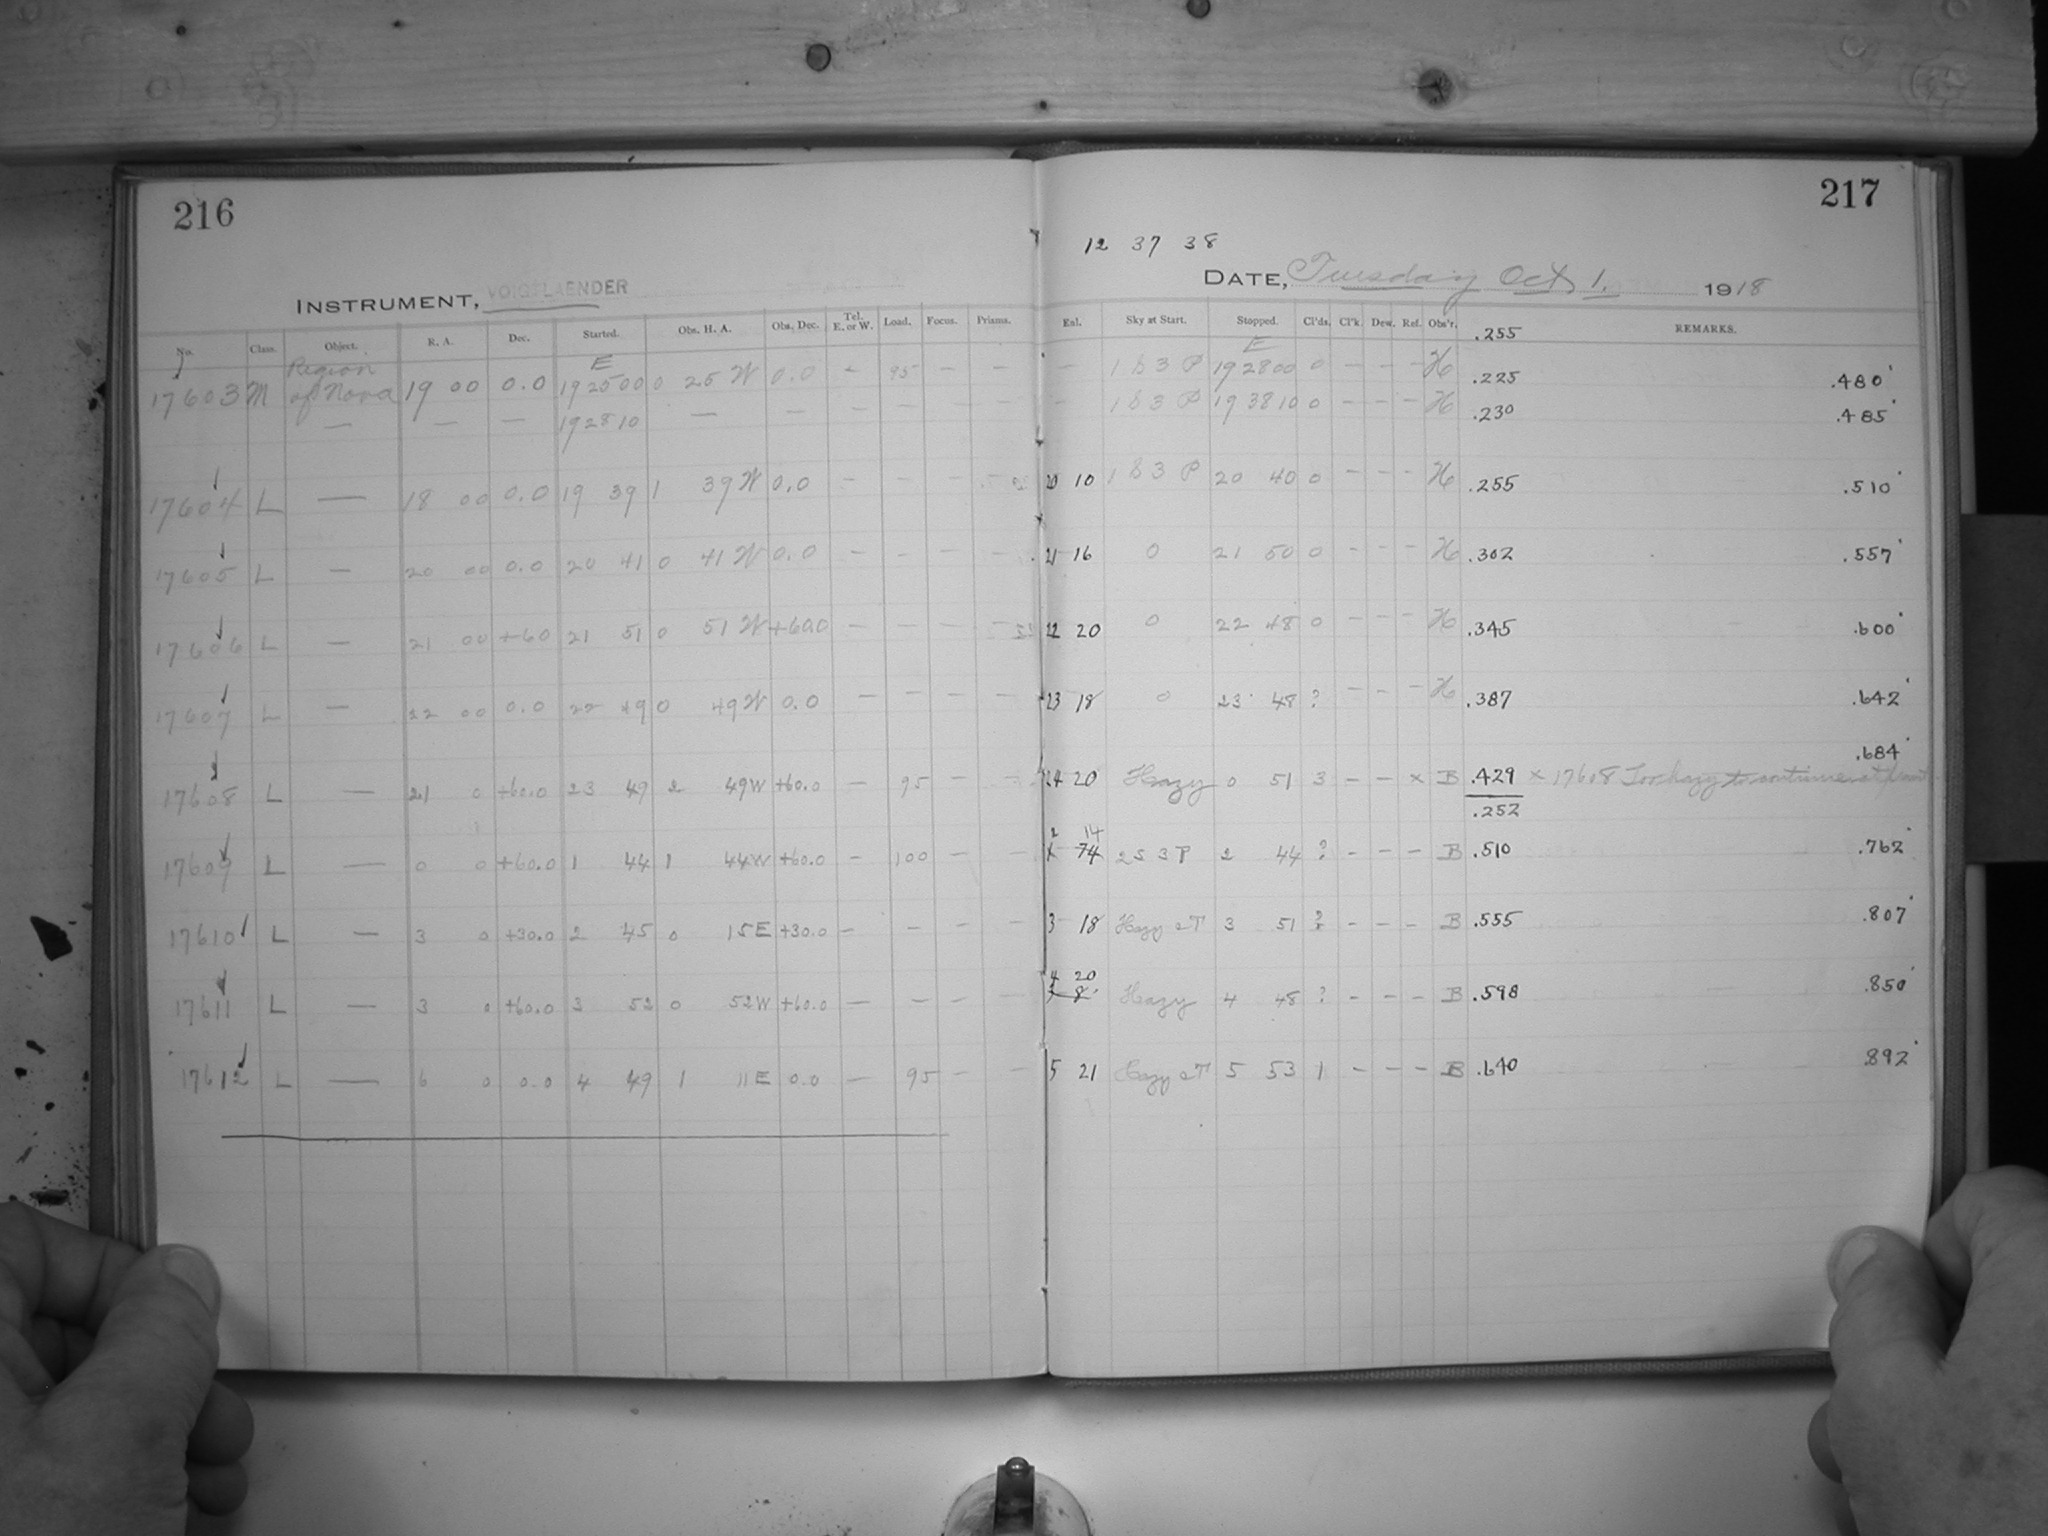 216
217
12 37 38
INSTRUMENT, VOIGTLAENDER
DATE, Tuesday Oct 1. 1918
No. Class. Object. R. A. Dec. Started. Obs. H. A. Obs. Dec. Tel. E. or W. Load. Focus. Prisms. Exl. Sky at Start. Stopped. Cl'ds. Cl'k. Dew. Ref. Obs'r. .255 REMARKS.
E E
17603 M Region of Nova 19 00 0.0 19 25 00 0 25 W 0.0 - 95 - - - 1 S 3 P 19 28 00 0 - - - H .225 .480
— — — 19 28 10 — — - - - - - 1 S 3 P 19 38 10 0 - - - H .230 .485
17604 L — 18 00 0.0 19 39 1 39 W 0.0 - - - - 20 10 1 S 3 P 20 40 0 - - - H .255 .510
17605 L — 20 00 0.0 20 41 0 41 W 0.0 - - - - 21 16 0 21 50 0 - - - H .302 .557
17606 L — 21 00 +60 21 51 0 51 W +60.0 - - - - 22 20 0 22 48 0 - - - H .345 .600
17607 L — 22 00 0.0 22 49 0 49 W 0.0 - - - - 23 18 0 23 48 ? - - - H .387 .642
.684
17608 L — 21 0 +60.0 23 49 2 49 W +60.0 - 95 - - 24 20 Hazy 0 51 3 - - x B .429 x 17608 Too hazy to continue at
.252
2 14
17609 L — 0 0 +60.0 1 44 1 44 W +60.0 - 100 - - 2 S 3 P 2 44 ? - - - B .510 .762
17610 L — 3 0 +30.0 2 45 0 15 E +30.0 - - - - 3 18 Hazy 2T 3 51 ? - - - B .555 .807
4 20
17611 L — 3 0 +60.0 3 52 0 52 W +60.0 - - - - Hazy 4 48 ? - - - B .598 .850
17612 L — 6 0 0.0 4 49 1 11 E 0.0 - 95 - - 5 21 Hazy 2T 5 53 1 - - - B .640 .892